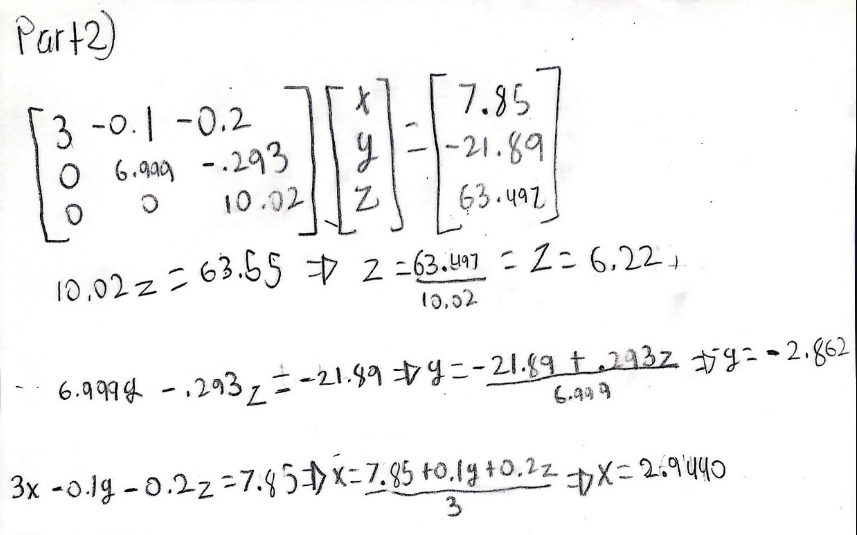 Part2)
[3 -0.1 -0.2] [x] = [7.85]
[0 6.999 -.293] [y] [-21.89]
[0 0 10.02] [z] [63.497]
10.02z = 63.55 ⇒ z = 63.497/10.02 = Z = 6.22
6.999y - .293z = -21.89 ⇒ y = -21.89 + .293z/6.999 ⇒ y = -2.862
3x - 0.1y - 0.2z = 7.85 ⇒ x = 7.85 + 0.1y + 0.2z/3 ⇒ x = 2.9440